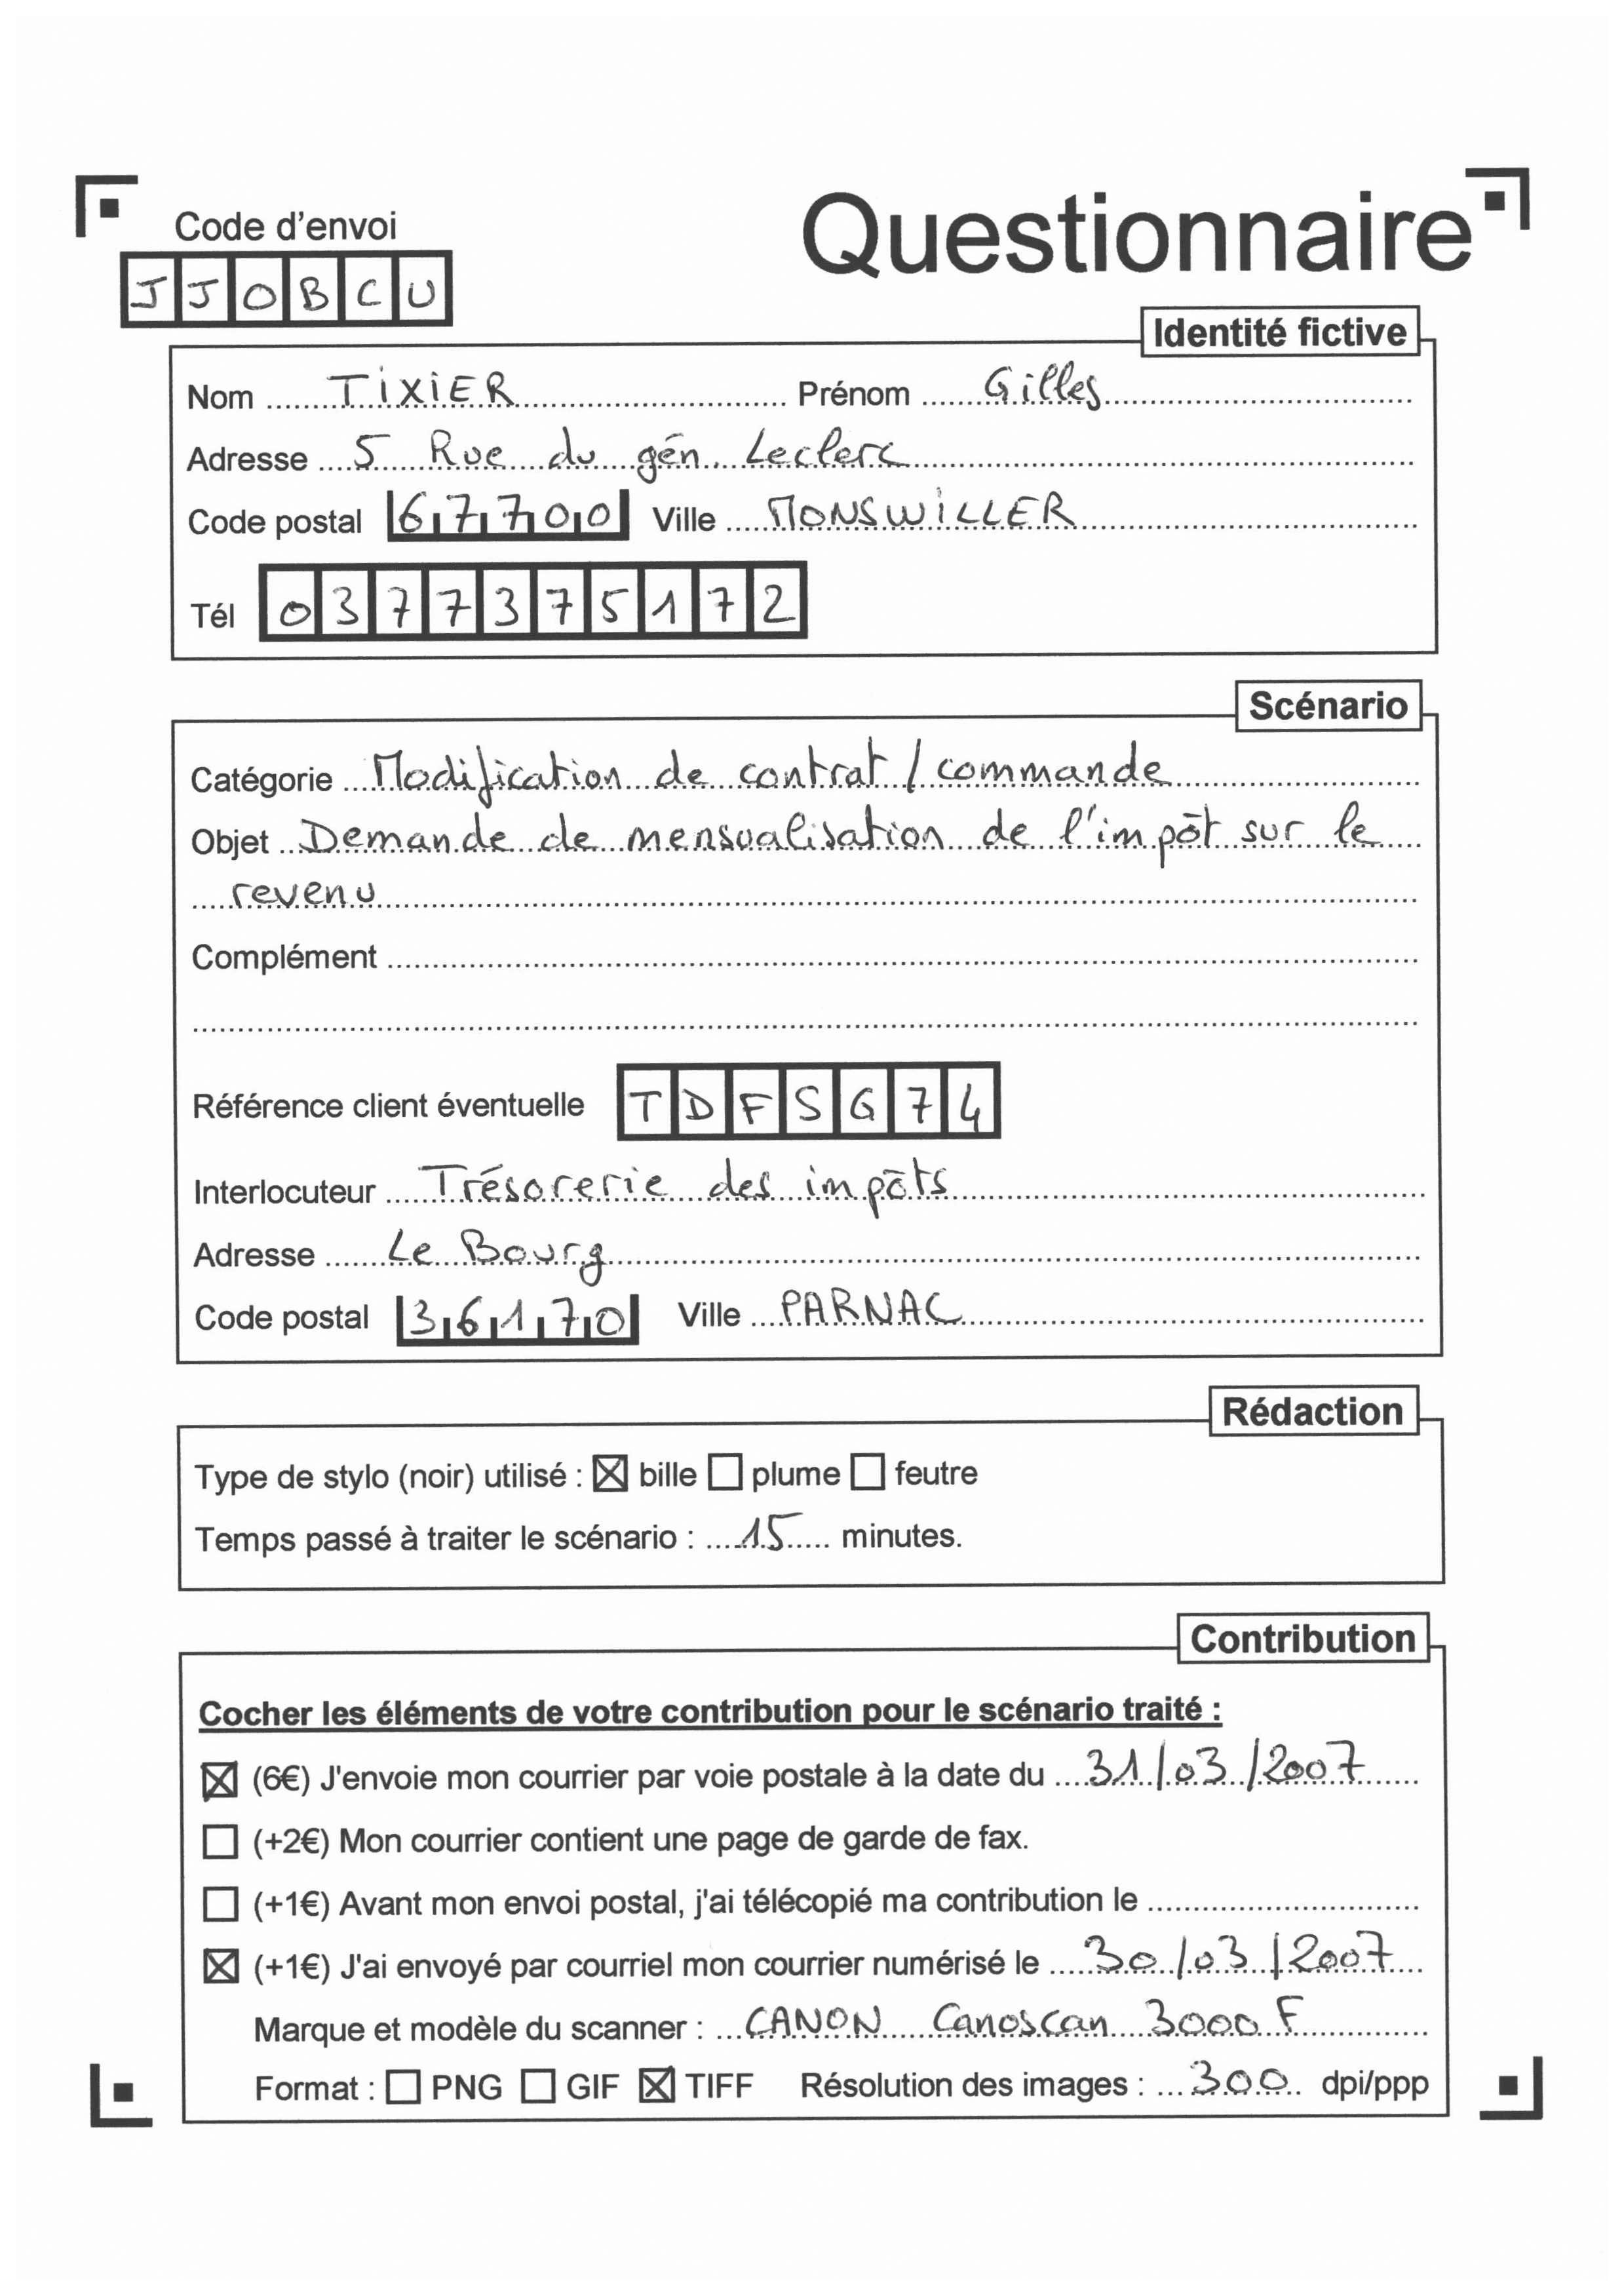 Questionnaire
Code d'envoi
JJOBCU
Identité fictive
Nom TIXIER Prénom Gilles
Adresse 5 Rue du gén. Leclerc
Code postal 67700 Ville MONSWILLER
Tél 0377375172
Scénario
Catégorie Modification de contrat / commande
Objet Demande de mensualisation de l'impôt sur le
revenu
Complément
Référence client éventuelle TDFSG74
Interlocuteur Trésorerie des impôts
Adresse Le Bourg
Code postal 36170 Ville PARNAC
Rédaction
Type de stylo (noir) utilisé : ☒ bille ☐ plume ☐ feutre
Temps passé à traiter le scénario : 15 minutes.
Contribution
Cocher les éléments de votre contribution pour le scénario traité :
☒ (6€) J'envoie mon courrier par voie postale à la date du 31/03/2007
☐ (+2€) Mon courrier contient une page de garde de fax.
☐ (+1€) Avant mon envoi postal, j'ai télécopié ma contribution le
☒ (+1€) J'ai envoyé par courriel mon courrier numérisé le 30/03/2007
Marque et modèle du scanner : CANON Canoscan 3000 F
Format : ☐ PNG ☐ GIF ☒ TIFF Résolution des images : 300 dpi/ppp